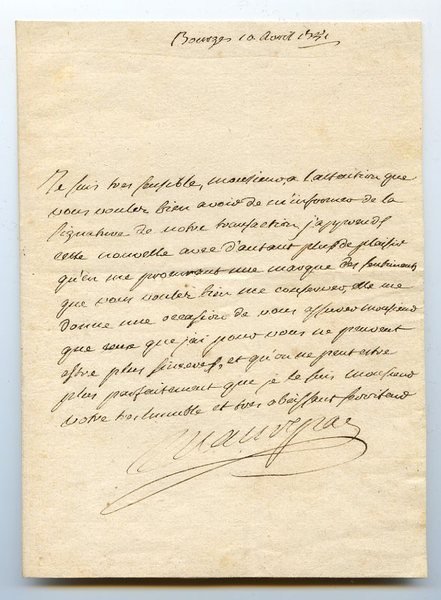 Bourges 10 Avril
Je suis tres sensible, monsieur, a l'attention que
vous voulez bien avoir de m'informer de la
signature de notre transaction j'apprends
cette nouvelle avec d'autant plus de plaisir
qu'en me procurant une marque des sentiments
que vous voulez bien me conserver, elle me
donne une occasion de vous assurer monsieur
que ceux que j'ai pour vous ne peuvent
estre plus sinceres, et qu'on ne peut estre
plus parfaitement que je le suis monsieur
votre tres humble et tres obeissant serviteur